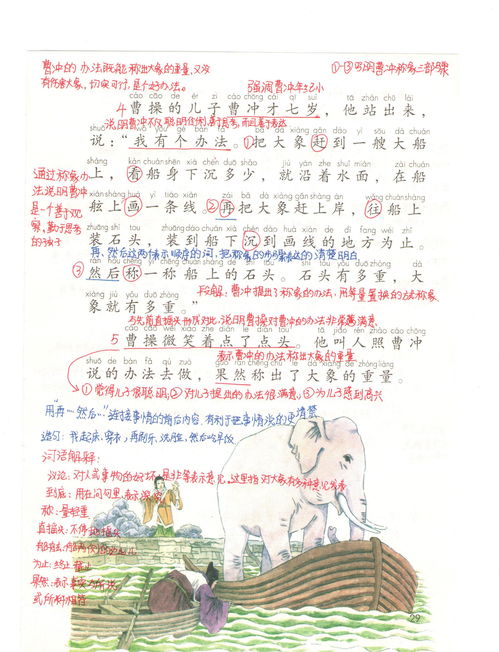 曹冲的办法既能称出大象的重量,又没
有伤害大象,切实可行,是个好办法。
①-③写明曹冲称象三部曲
强调曹冲年纪小
cáo cāo de ér zi cáo chōng cái qī suì tā zhàn chū lái
4 曹操的儿子曹冲才七岁,他站出来,
说明曹冲不仅聪明伶俐,善于思考,而且善于表达
shuō wǒ yǒu gè bàn fǎ bǎ dà xiàng gǎn dào yì sōu dà chuán
说:“我有个办法。①把大象赶到一艘大船
通过称象办
法说明曹冲
是一个善于观
察,勤于思考
的孩子
shàng kàn chuán shēn xià chén duō shǎo jiù yán zhe shuǐ miàn zài chuán
上,看船身下沉多少,就沿着水面,在船
xián shàng huà yì tiáo xiàn zài bǎ dà xiàng gǎn shàng àn wǎng chuán shàng
舷上画一条线。②再把大象赶上岸,往船上
zhuāng shí tou zhuāng dào chuán xià chén dào huà xiàn de dì fang wéi zhǐ
装石头,装到船下沉到画线的地方为止。
再、然后这两个表示顺序的词,把称象的步骤表达的清楚明白
rán hòu chēng yì chēng chuán shàng de shí tou shí tou yǒu duō zhòng dà
③然后称一称船上的石头。石头有多重,大
段解:曹冲提出了称象的办法,用等量置换的方法称象
xiàng jiù yǒu duō zhòng
象就有多重。”
与先前直摇头形成对比,说明曹操对曹冲的办法非常满意
cáo cāo wēi xiào zhe diǎn le diǎn tóu tā jiào rén zhào cáo chōng
5 曹操微笑着点了点头。他叫人照曹冲
表示曹冲的办法称出大象的重量
shuō de bàn fǎ qù zuò guǒ rán chēng chū le dà xiàng de zhòng liàng
说的办法去做,果然称出了大象的重量。
①觉得儿子很聪明,②对儿子提出的办法很满意。③为儿子感到高兴
用“再…然后…”连接事情的前后内容,有利于把事情说的更清楚
造句:我起床、穿衣,再刷牙、洗脸,然后吃早饭
词语解释:
议论:对人或事物的好坏、是非等表示意见。这里指对大象有多种意见
到底:用在问句里,表示深究
称:量轻重
直摇头:不停地摇头
船舷:船两侧的边儿
为止:终止,截止
果然:表示事实与所说
或所料相符
29